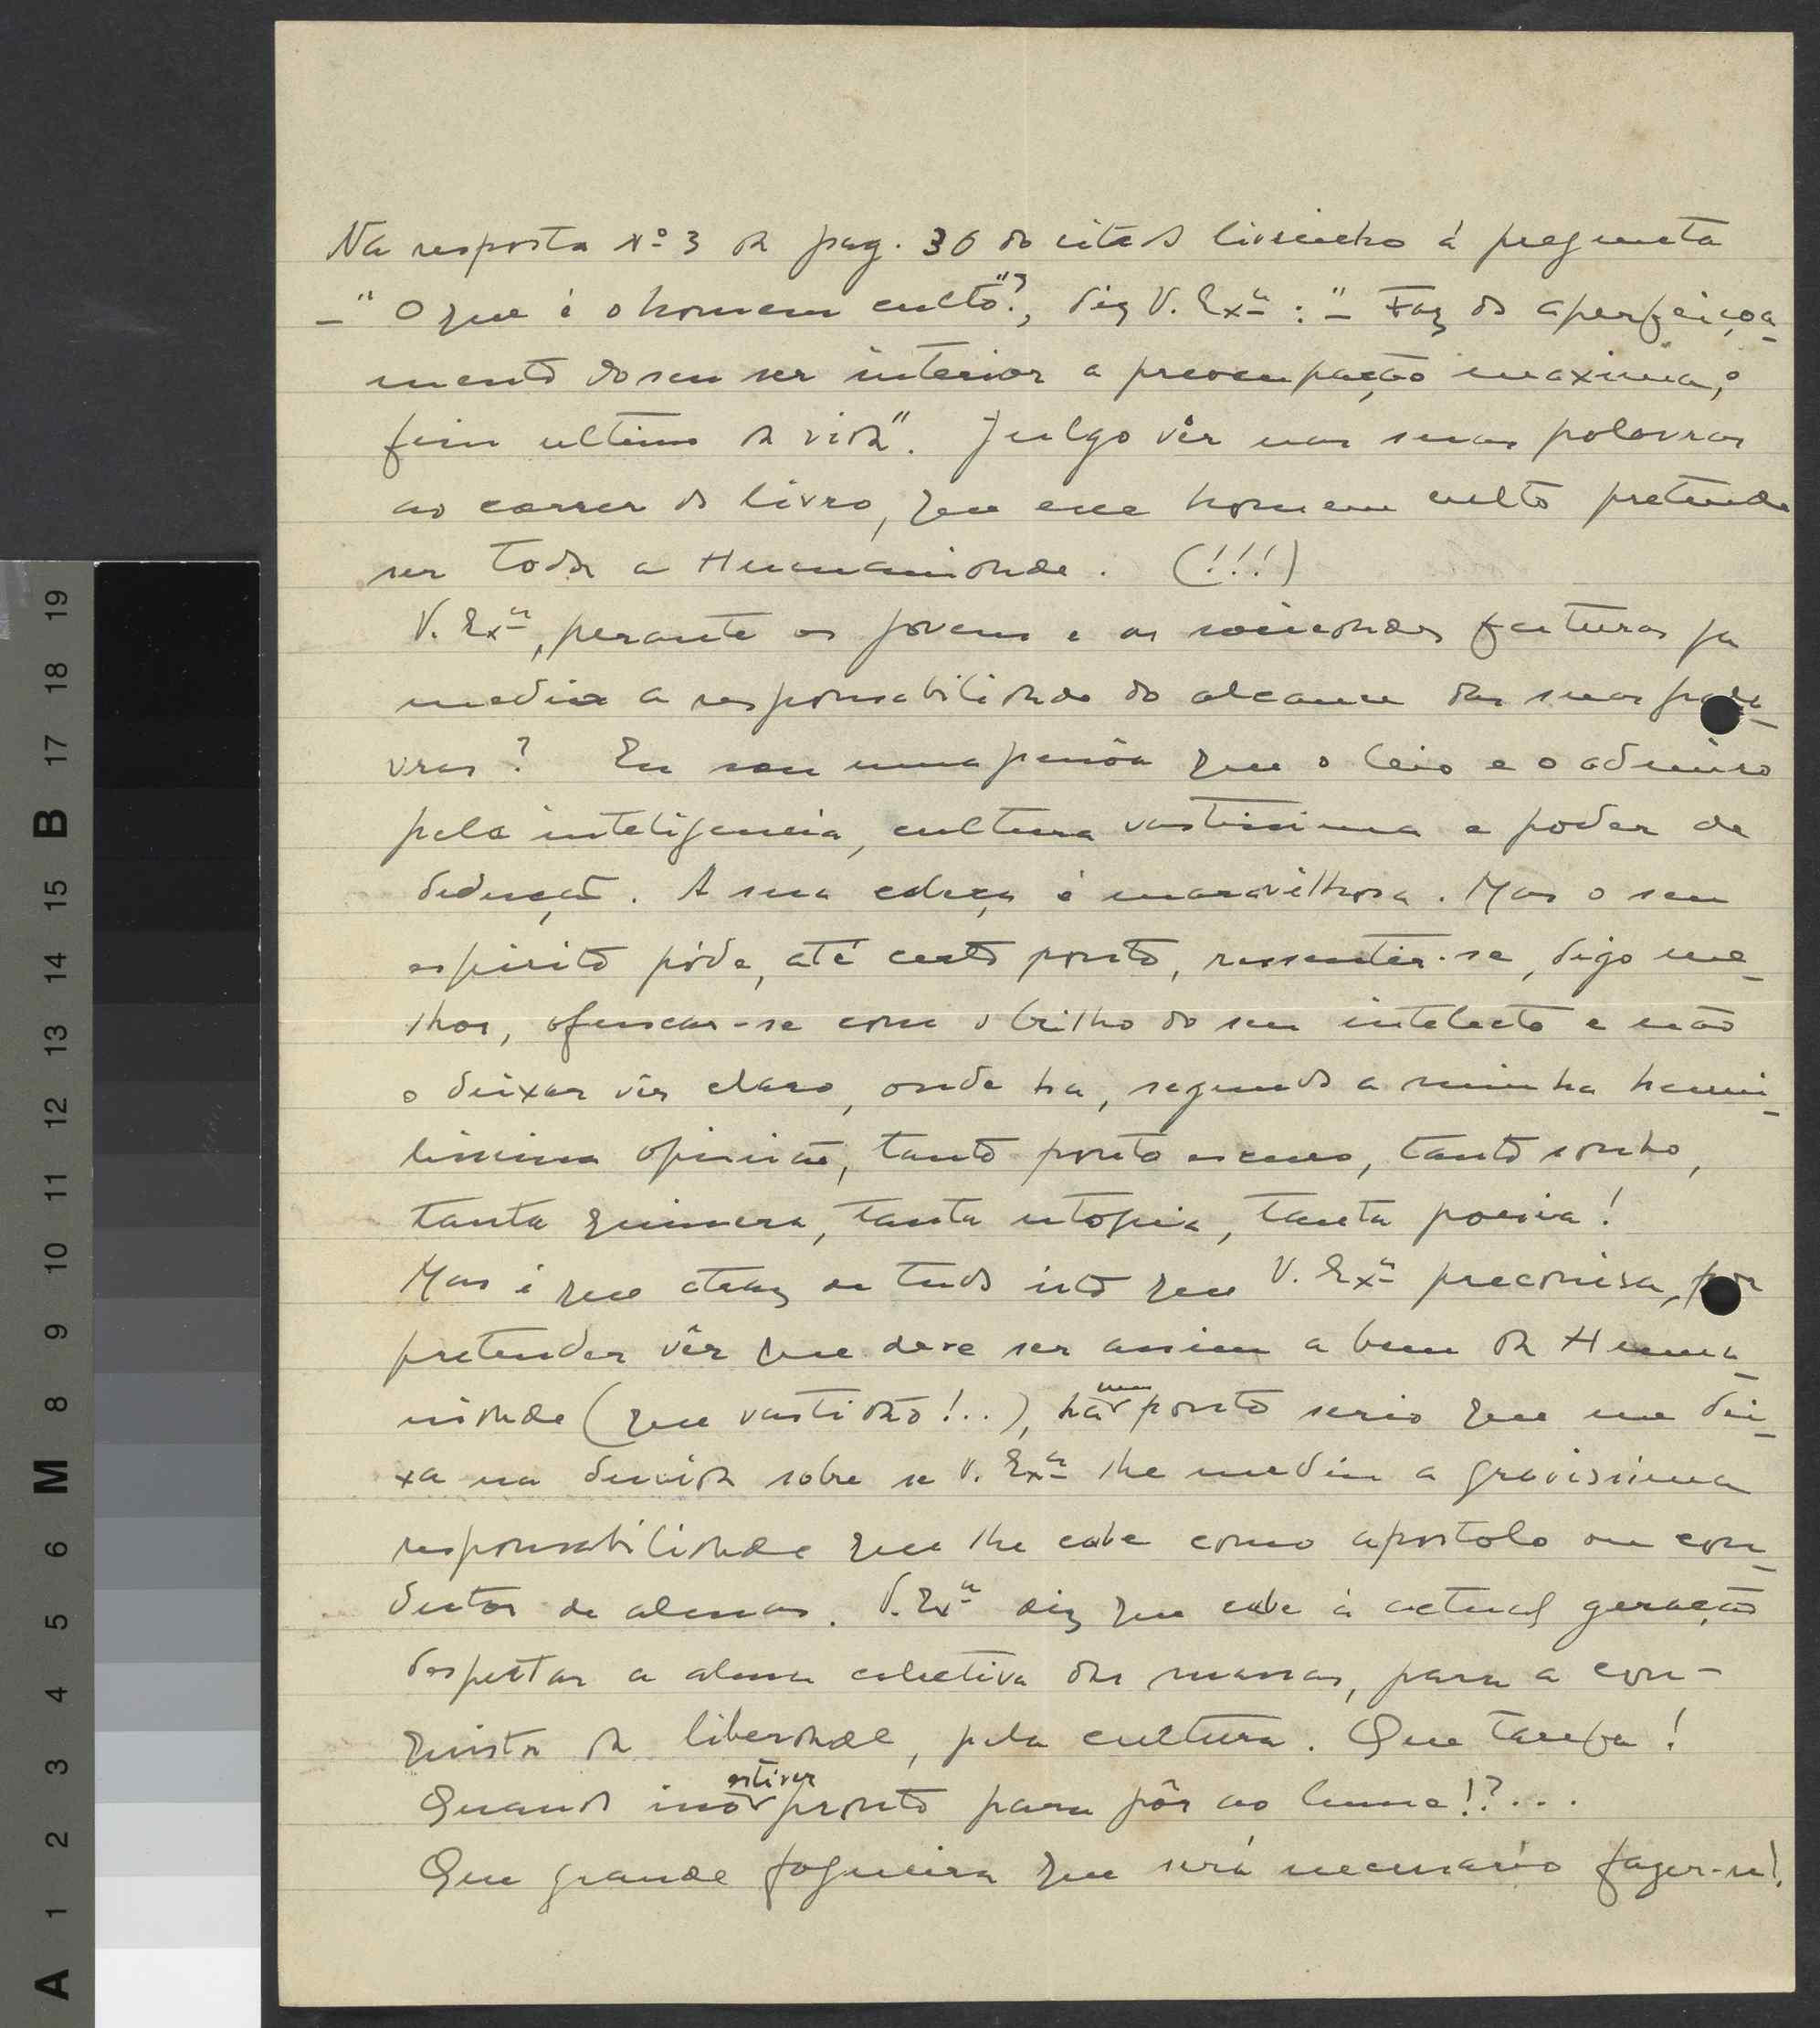 Na resposta nº 3 da pag. 36 do citado livrinho á pregunta
– "O que é o homem culto"?, diz V. Exª : "– Faz do aperfeiçoa-
mento do seu ser interior a preocupação maxima, o
fim ultimo da vida". Julgo vêr nas suas palavras
ao correr do livro, que esse homem culto pretende
ser toda a Humanidade. (!!!)
V. Exª, perante os jovens e as sociedades futuras ja
mediu a responsabilidade do alcance das suas pala-
vras? Eu sou uma pessôa que o leio e o admiro
pela inteligencia, cultura vastissima e poder de
dedução. A sua cabeça é maravilhosa. Mas o seu
espirito póde, até certo ponto, ressentir-se, digo me-
lhor, ofuscar-se com o brilho do seu intelecto e não
o deixar vêr claro, onde ha, segundo a minha humi-
lissima opinião, tanto ponto escuro, tanto sonho,
tanta quimera, tanta utopia, tanta poesia!
Mas é que atraz de tudo isto que V. Exª preconisa, por
pretender vêr que deve ser assim a bem da Huma-
nidade (que vastidão!..), ha um ponto serio que me dei-
xa na duvida sobre se V. Exª lhe mediu a gravissima
responsabilidade que lhe cabe como apostolo ou con-
dutor de almas. V. Exª diz que cabe á actual geração
despertar a alma colectiva das massas, para a con-
quista da liberdade, pela cultura. Que tarefa!
Quando isso estiver pronto para pôr ao lume!?...
Que grande fogueira que será necessario fazer-se!